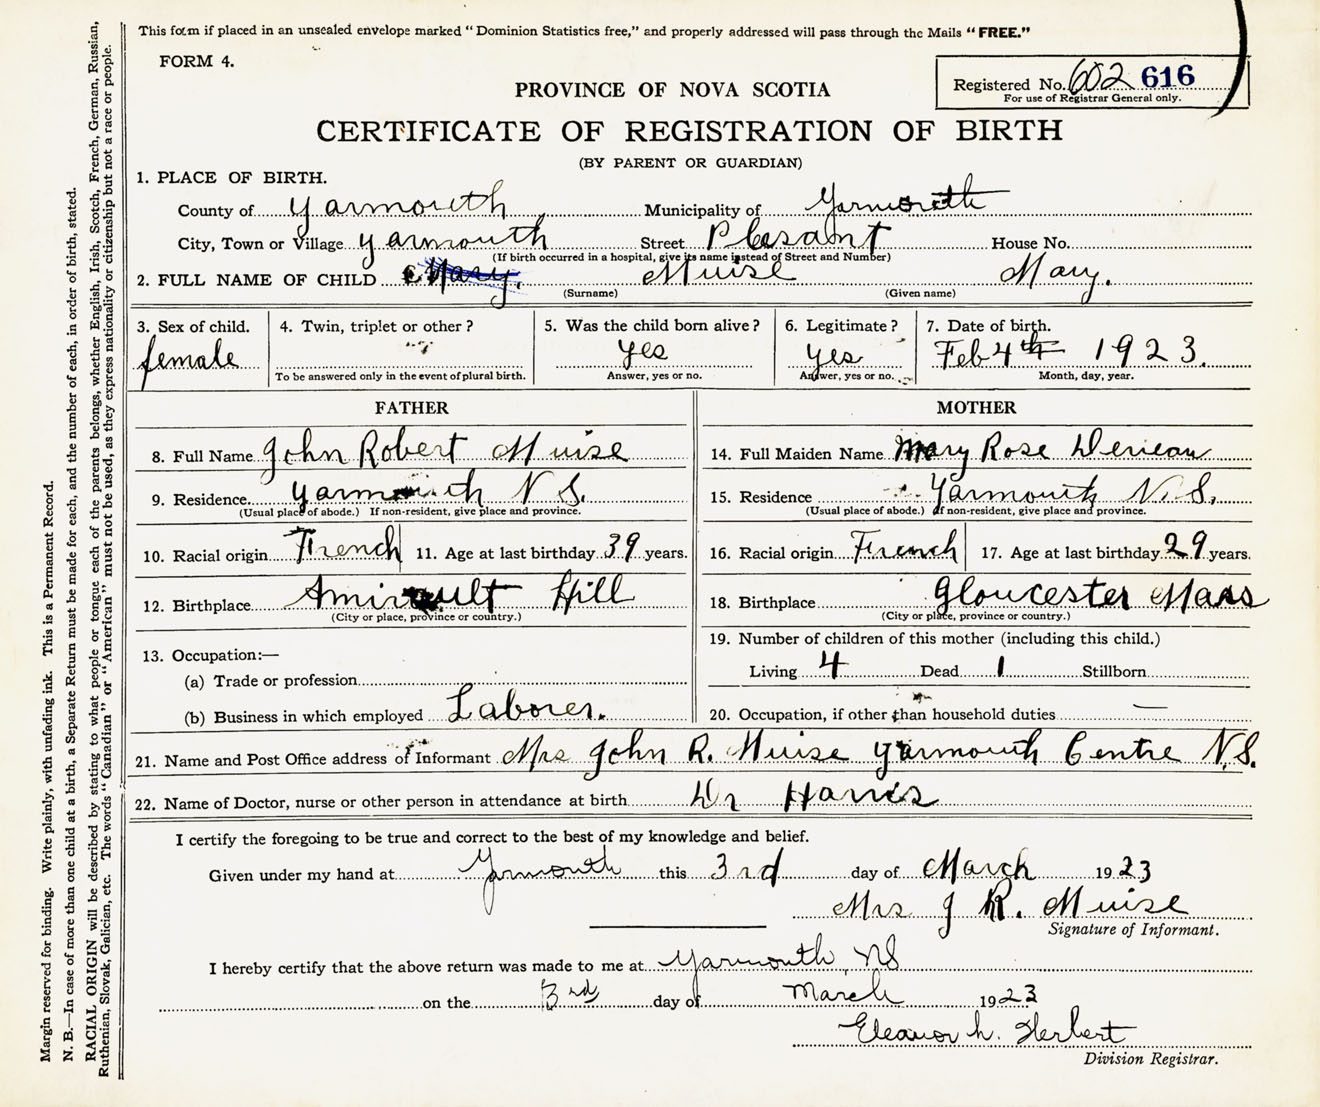 This form if placed in an unsealed envelope marked "Dominion Statistics free," and properly addressed will pass through the Mails "FREE."
FORM 4.
Registered No. 602 616
For use of Registrar General only.
PROVINCE OF NOVA SCOTIA
CERTIFICATE OF REGISTRATION OF BIRTH
(BY PARENT OR GUARDIAN)
1. PLACE OF BIRTH.
County of Yarmouth Municipality of Yarmouth
City, Town or Village Yarmouth Street Plesant House No.
(If birth occurred in a hospital, give its name instead of Street and Number)
2. FULL NAME OF CHILD Mary. Muise Mary.
(Surname) (Given name)
3. Sex of child. 4. Twin, triplet or other? 5. Was the child born alive? 6. Legitimate? 7. Date of birth.
female yes yes Feb 4th 1923.
To be answered only in the event of plural birth. Answer, yes or no. Answer, yes or no. Month, day, year.
FATHER MOTHER
8. Full Name John Robert Muise 14. Full Maiden Name Mary Rose
9. Residence Yarmouth N S. 15. Residence Yarmouth N.S.
(Usual place of abode.) If non-resident, give place and province. (Usual place of abode.) If non-resident, give place and province.
10. Racial origin French 11. Age at last birthday 39 years. 16. Racial origin French 17. Age at last birthday 29 years.
12. Birthplace Amirault Hill 18. Birthplace Gloucester Mass
(City or place, province or country.) (City or place, province or country.)
13. Occupation:— 19. Number of children of this mother (including this child.)
(a) Trade or profession Living 4 Dead 1 Stillborn
(b) Business in which employed Laborer. 20. Occupation, if other than household duties —
21. Name and Post Office address of Informant Mrs John R. Muise Yarmouth Centre N.S.
22. Name of Doctor, nurse or other person in attendance at birth Dr Harris
I certify the foregoing to be true and correct to the best of my knowledge and belief.
Given under my hand at Yarmouth this 3rd day of March 1923
Mrs J R. Muise
Signature of Informant.
I hereby certify that the above return was made to me at Yarmouth, NS
on the 3rd day of March 1923
Eleanor h. Herbert
Division Registrar.
Margin reserved for binding. Write plainly, with unfading ink. This is a Permanent Record.
N. B.—In case of more than one child at a birth, a Separate Return must be made for each, and the number of each, in order of birth, stated.
RACIAL ORIGIN will be described by stating to what people or tongue each of the parents belongs, whether English, Irish, Scotch, French, German, Russian,
Ruthenian, Slovak, Galician, etc. The words "Canadian" or "American" must not be used, as they express nationality or citizenship but not a race or people.